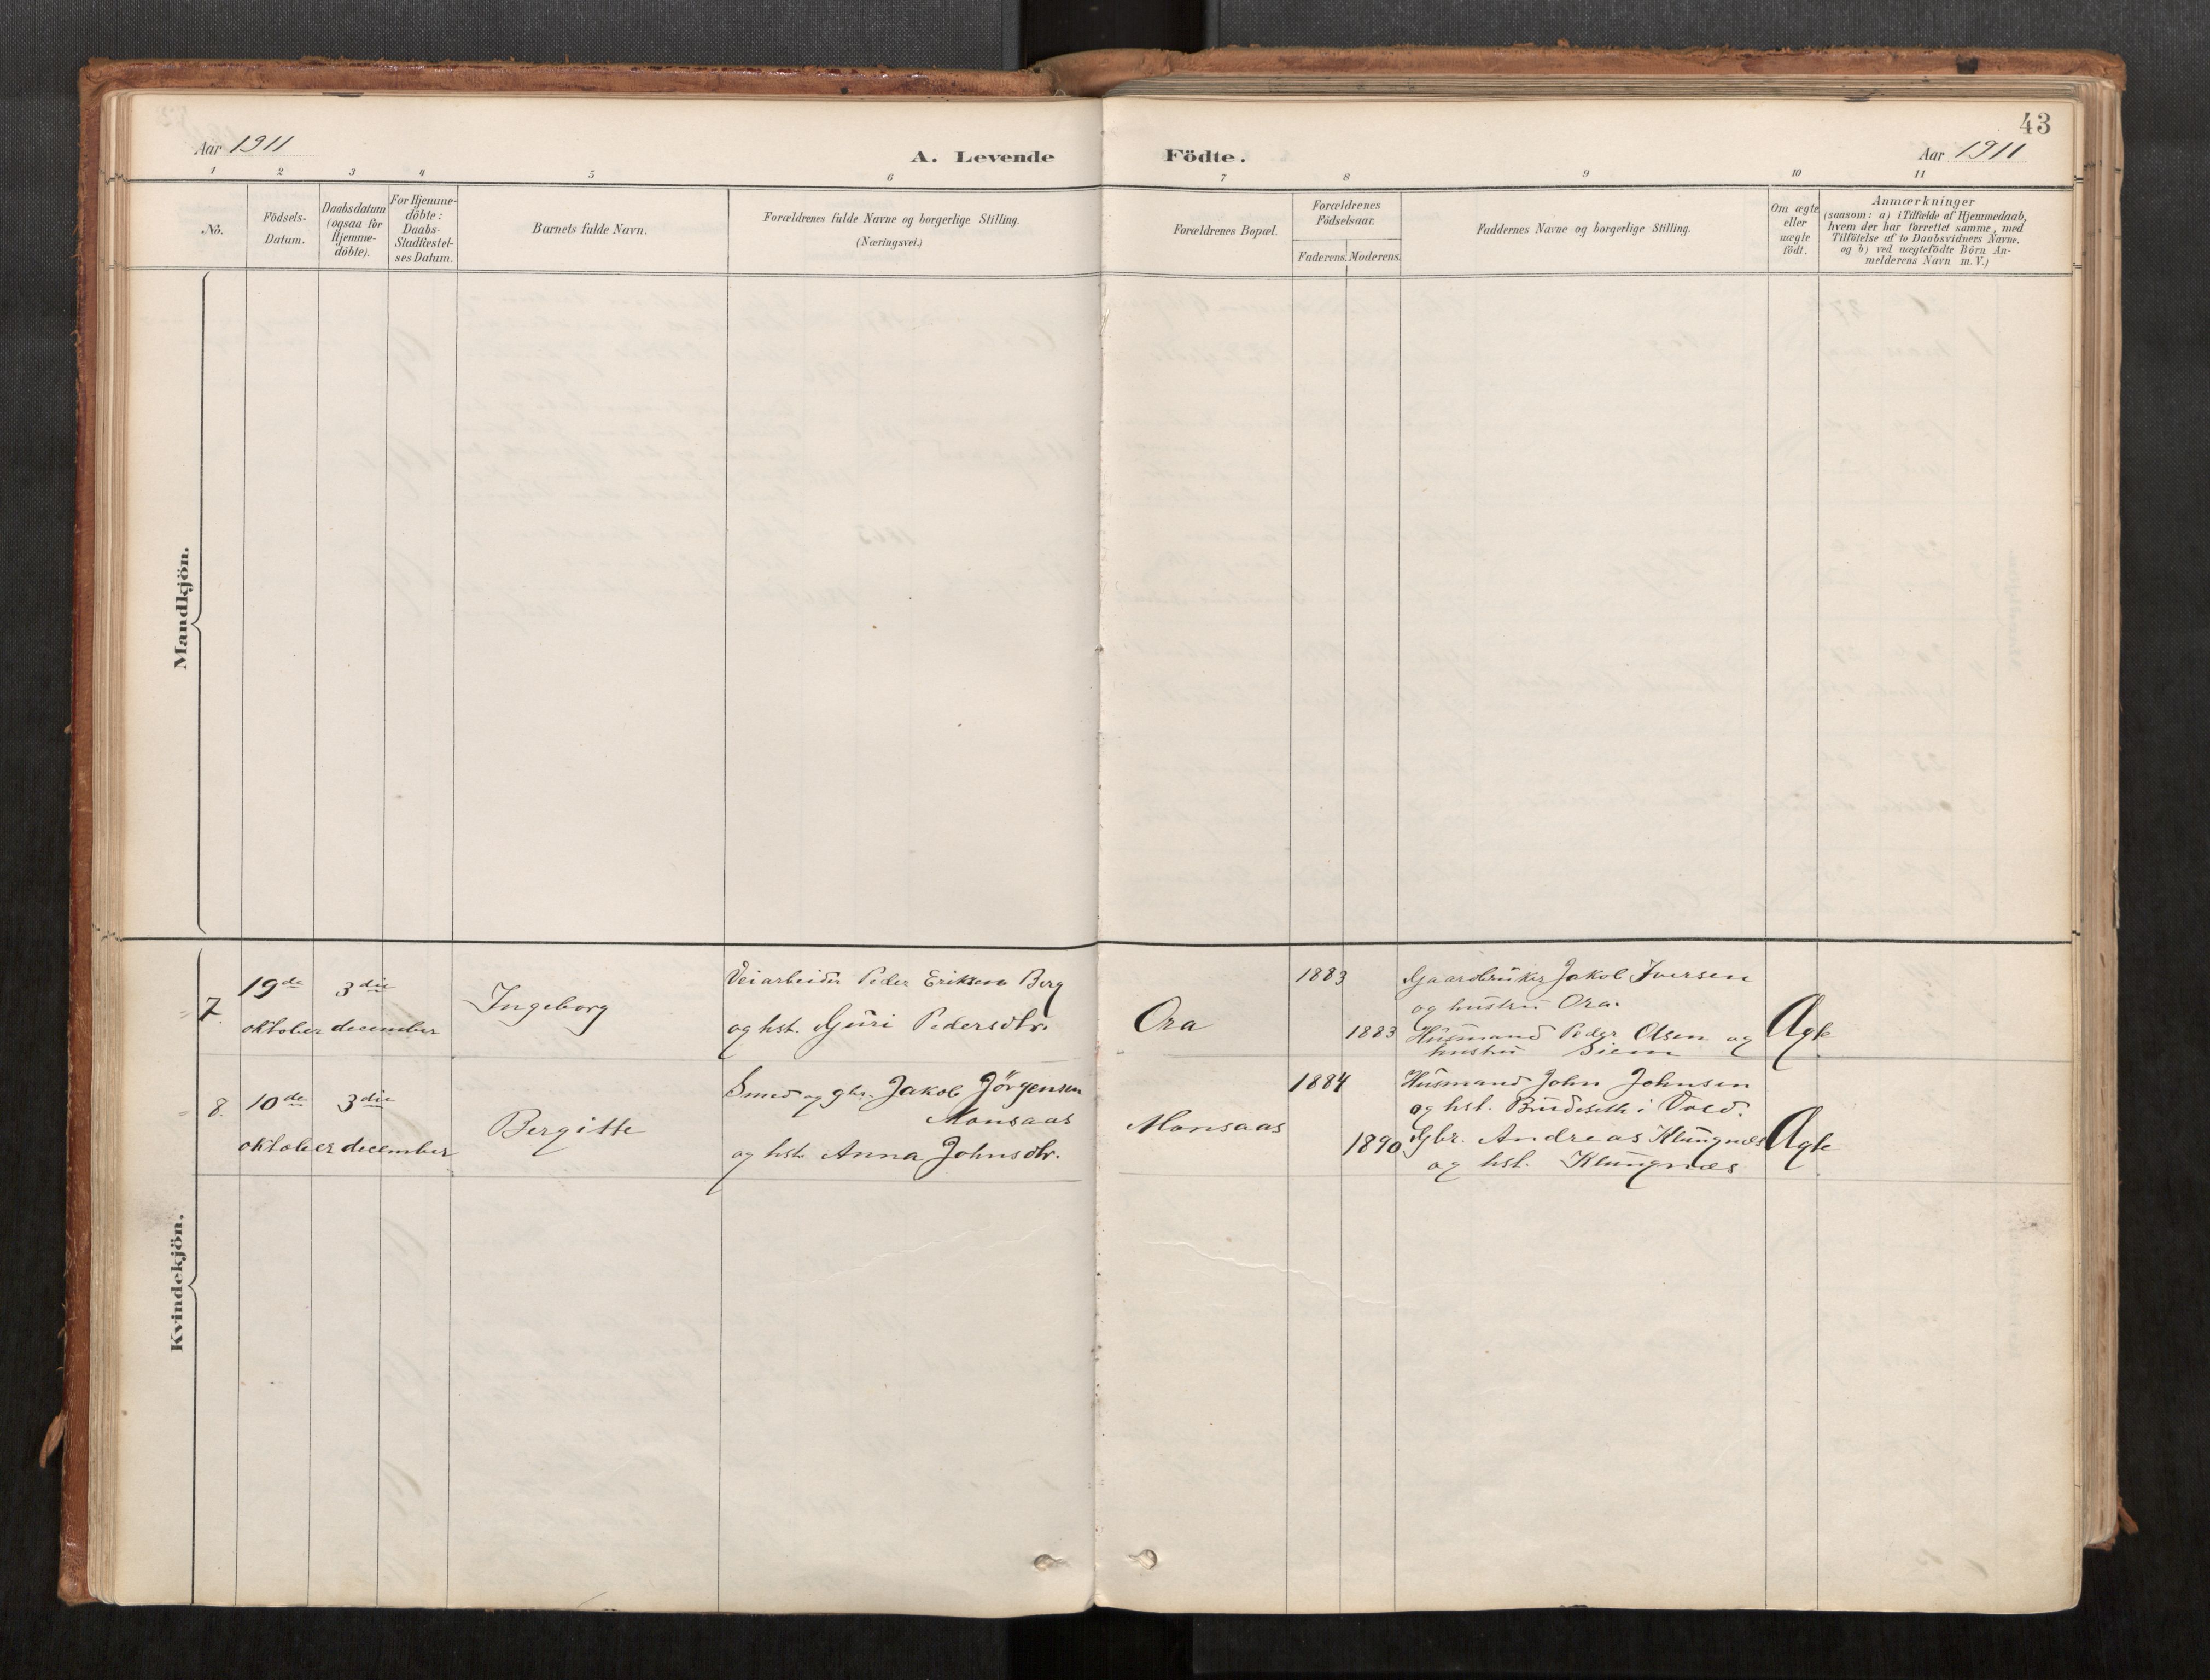 43
Aar 1911
A. Levende Födte.
Aar 1911
1 2 3 4 5 6 7 8 9 10 11
No.
Födsels-
Datum.
Daabsdatum
(ogsaa for
Hjemme-
döbte).
For Hjemme-
döbte:
Daabs-
Stadfæstel-
ses Datum.
Barnets fulde Navn.
Forældrenes fulde Navne og borgerlige Stilling.
(Næringsvei.)
Forældrenes Bopæl.
Forældrenes
Födselsaar.
Faderens. Moderens.
Faddernes Navne og borgerlige Stilling.
Om ægte
eller
uægte
födt.
Anmærkninger
(saasom: a) i Tilfælde af Hjemmedaab,
hvem der har forrettet samme, med
Tilföielse af to Daabsvidners Navne.
og b) ved uægtefödte Börn An-
melderens Navn m. V.)
Mandkjön.
Kvindekjön.
7.
19de
oktober
3die
december
Ingeborg
Veiarbeider Peder Eriksen Berg
og hst. Guri Pedersdtr.
Ora
1883
1883
Gaardbruker Jakob Iversen
og hustru Ora.
Husmand Peder Olsen og
hustru Siem
Ægte
8.
10de
oktober
3die
december
Bergitte
Smed og gbr. Jakob Jörgensen
Monsaas
og hst. Anna Johnsdtr.
Monsaas
1884
1890
Husmand John Johnsen
og hst. Brudeseth i Vold.
Gbr. Andreas Klungnæs
og hst. Klungnæs
Ægte